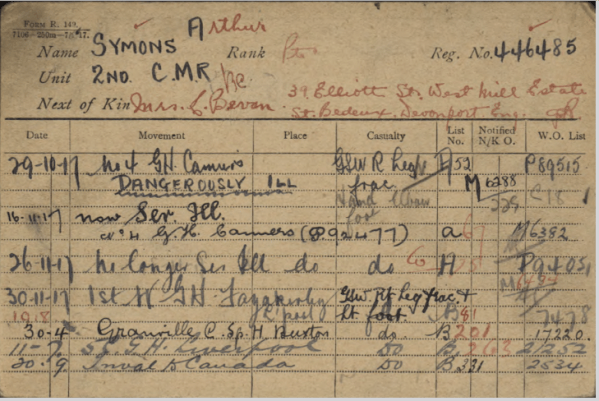 Form R. 149.
Name SYMONS Arthur Rank Pte Reg. No. 446485
Unit 2ND. C.M.R BC
Next of Kin Mrs. C. Bevan. 39 Elliott St. West Mill Estate
St. Bedeux. Devonport Eng.
Date Movement Place Casualty List No. Notified N/K O. W.O. List
29-10-17 No 4 G.H. Camiers GSW R Leg A 52 P89515
DANGEROUSLY ILL frac M 6288 C18 1
and Elbow 329
16-11-17 now Ser. Ill. foot
No 4 G.H. Camiers (P.92477) a 67 M6382
26-11-17 No longer Ser Ill do do A P94051
30-11-17 1st W G.H. Fazakerley GSW Rt Leg frac. & M
1918 L'pool Lt foot. B81 7478
30-4 Granville C. Sp. H Buxton do. B201 17220.
11-7. 5 G.H. Liverpool Do B263 2252
20-9 Inval to Canada Do B331 2534